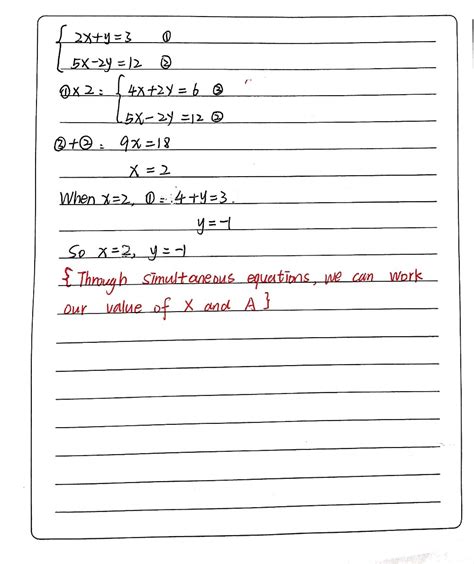 { 2x+y=3 ①
5x-2y=12 ②
①×2: { 4x+2y=6 ③
5x-2y=12 ②
③+②: 9x=18
x=2
When x=2, ①=:4+y=3.
y=-1
So x=2, y=-1
{ Through simultaneous equations, we can work
our value of X and A }